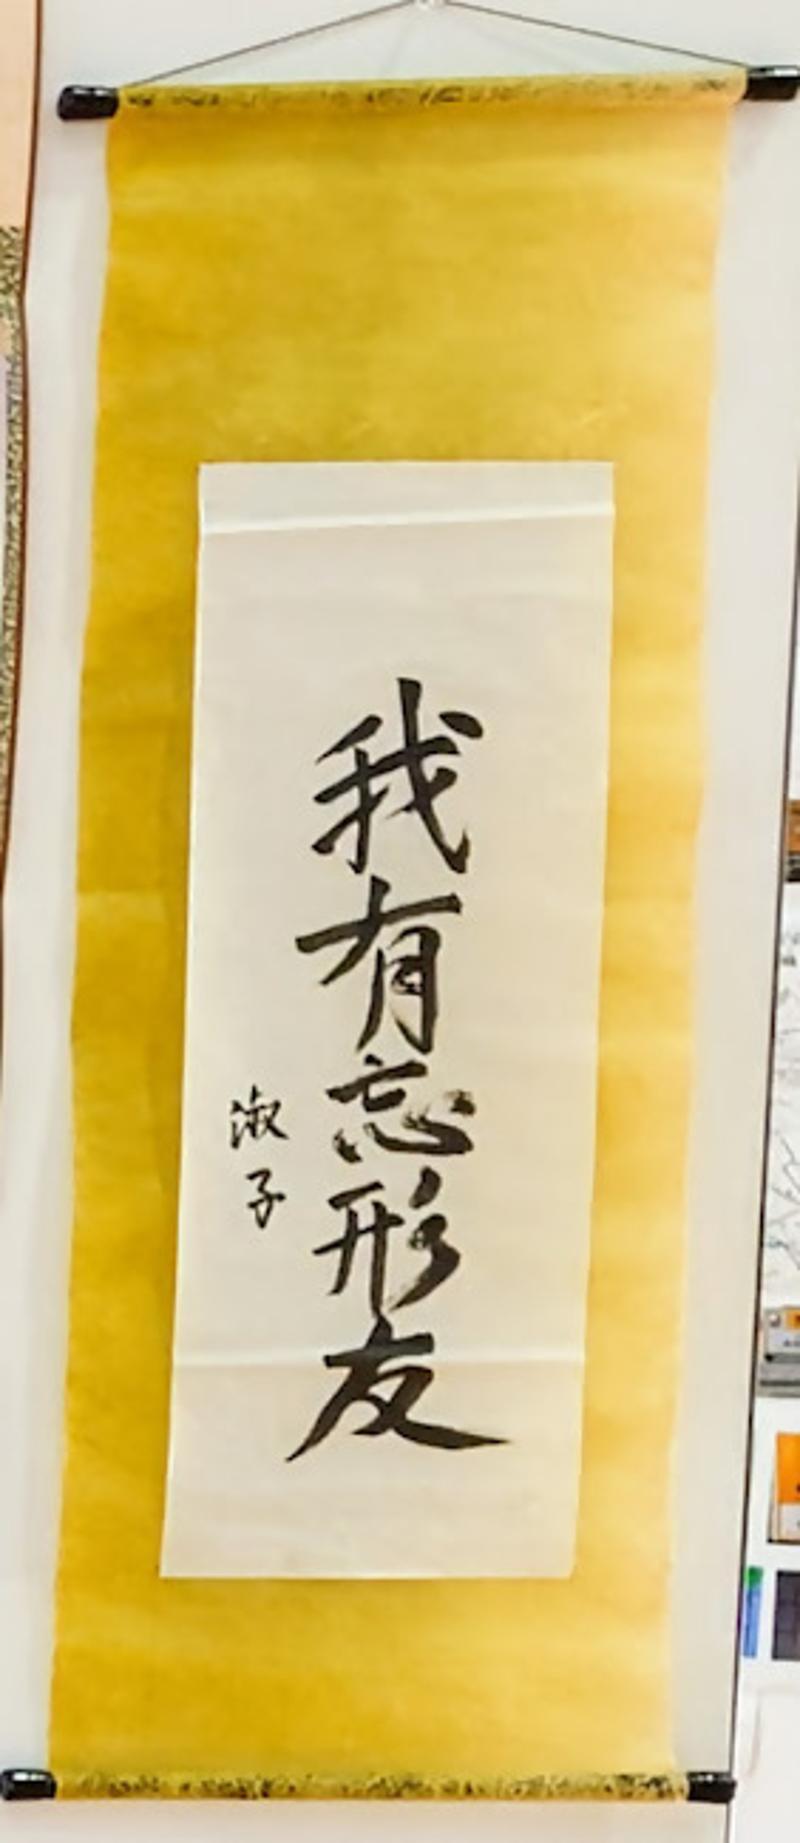 我有忘形友
淑子